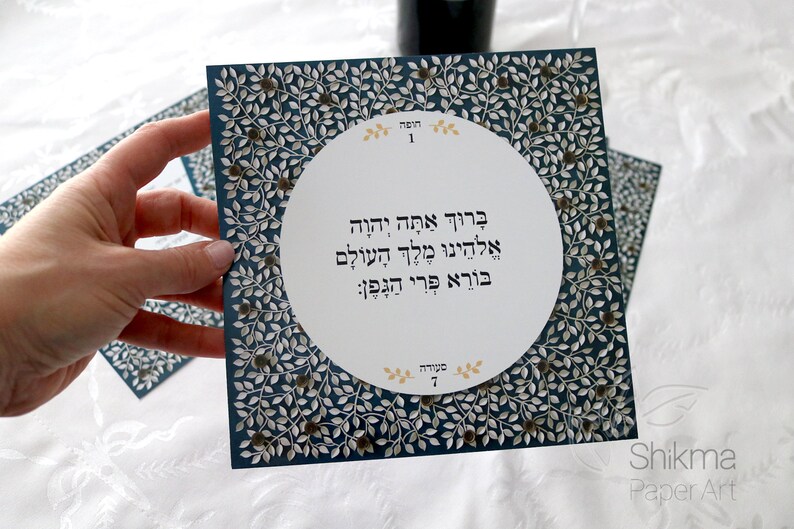 חופה
1
בָּרוּךְ אַתָּה יְהוָה
אֱלֹהֵינוּ מֶלֶךְ הָעוֹלָם
בּוֹרֵא פְּרִי הַגָּפֶן:
סעודה
7
Shikma
Paper Art